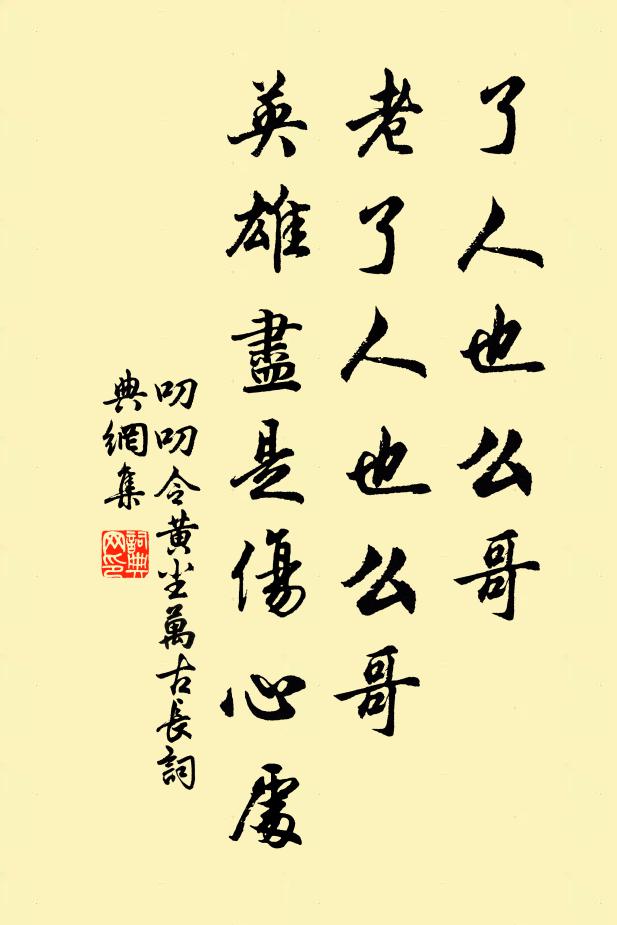 了人也么哥
老了人也么哥
英雄盡是傷心處
叨叨令黄尘萬古長詞
典網集
詞典
网印